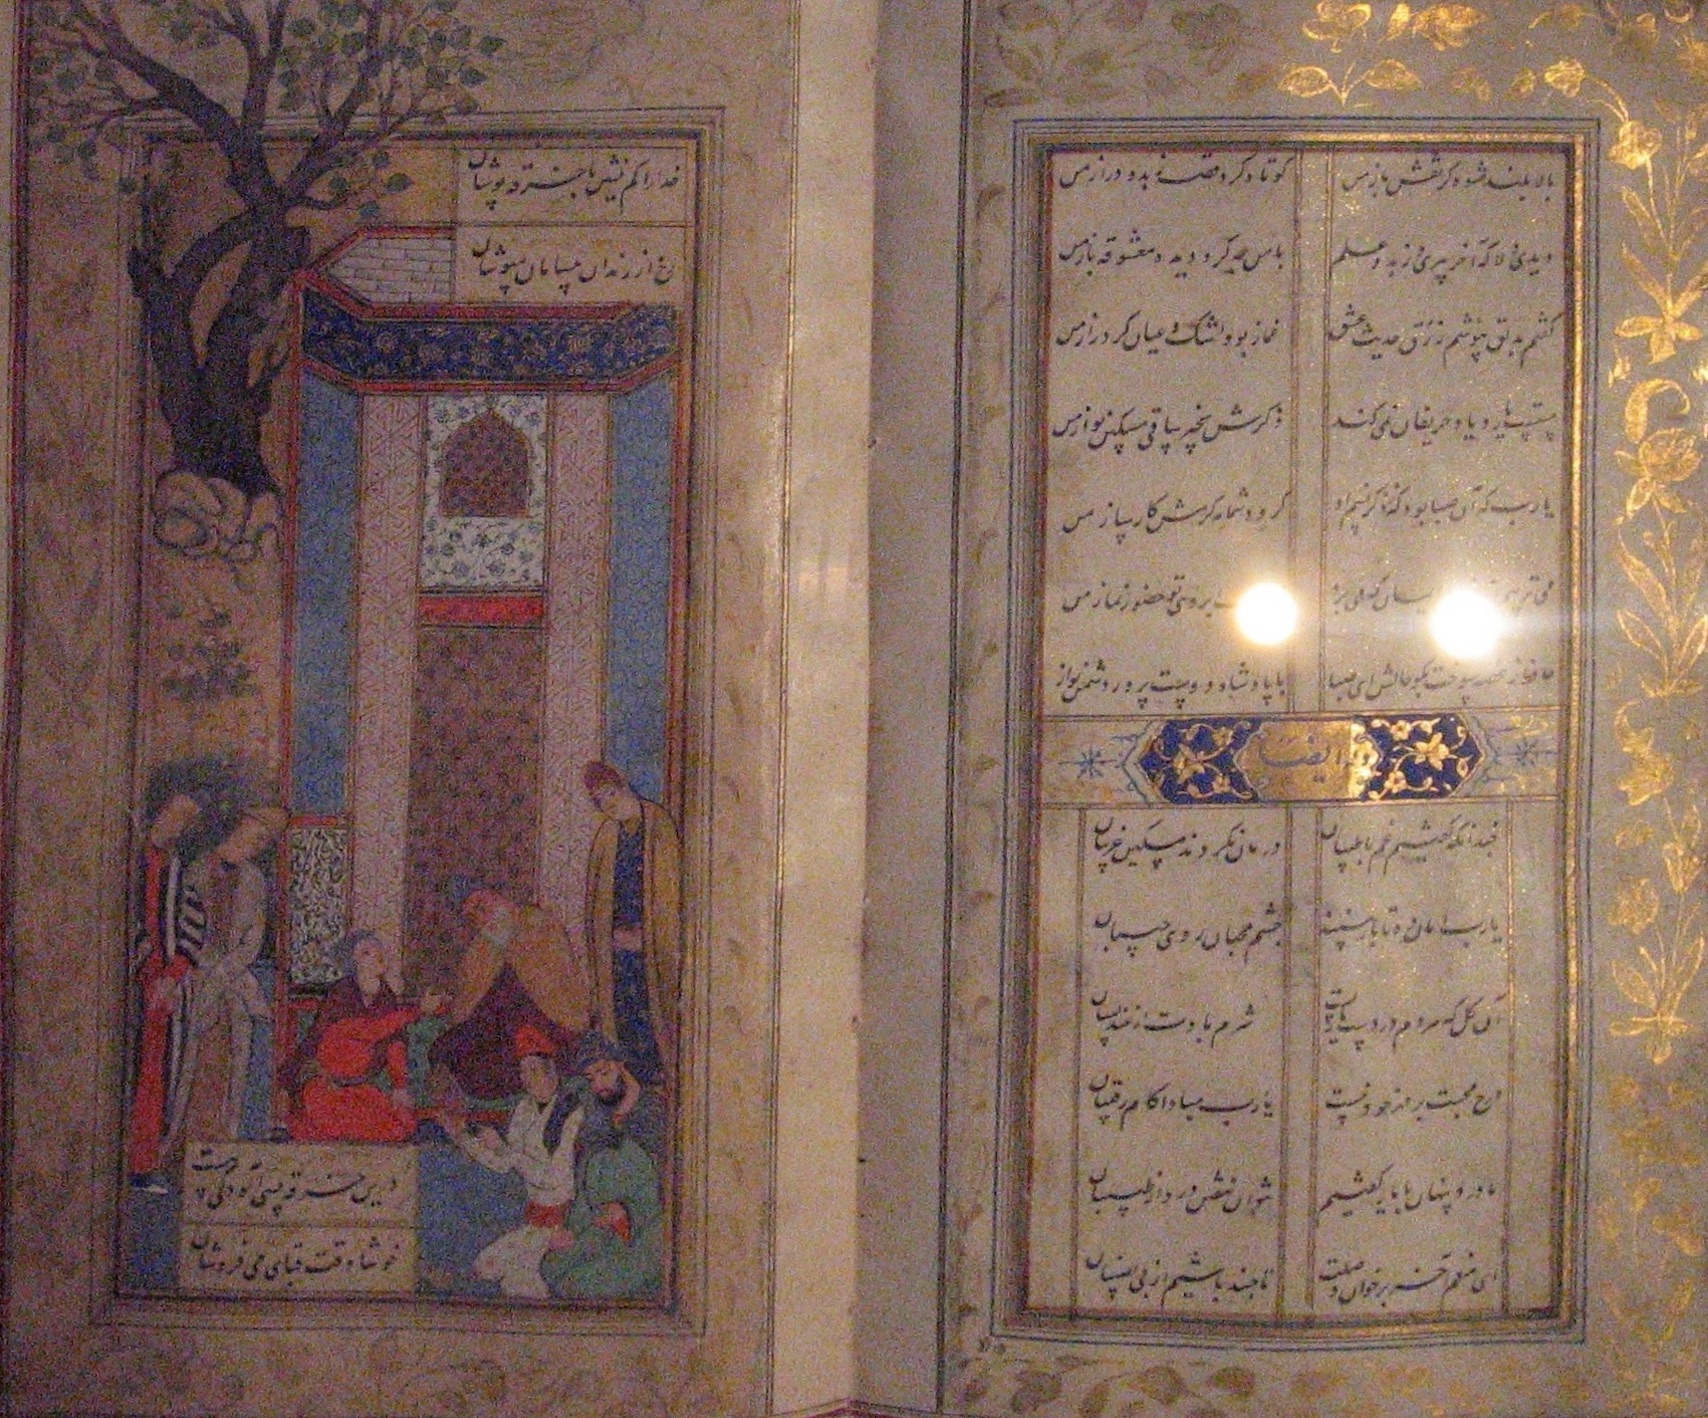 بالا بلند عشوه گر نقش باز من کوتاه کرد قصه زهد دراز من
دیدی دلا که آخر پیری و زهد و علم با من چه کرد دیده معشوقه باز من
گفتم بدلق بپوشم زرق حدیث عشق غماز بود اشک و عیان کرد راز من
مستست یار و یاد حریفان نمی کند ذکرش بخیر ساقی مسکین نواز من
یارب که آن صبا بوزد کز نسیم او گردد شمامه کرمش کارساز من
می ترسم ایمان که می برد ابروی تو حضور نماز من
حافظ ز غصه سوخت بگو حالش ای صبا با پادشاه دوست پرور دشمن نواز
ایضا
چندانکه گفتیم غم با طبیبان درمان نکردند مسکین غریبان
یارب امان ده تا باز بیند چشم محبان روی حبیبان
آن گل که هر دم در دست بادیست شرم بادت از عندلیبان
درج محبت بر مهر خود نیست یارب مبادا کام رقیبان
ما درد پنهان با یار گفتیم نتوان نهفتن درد از طبیبان
ای منعم آخر بر خوان وصلت تا چند باشیم از بی نصیبان
خدارا کم نشین با خرقه پوشان
رخ از رندان بی سامان مپوشان
درین خرقه بسی آلودگی هست
خوشا وقت قبای می فروشان